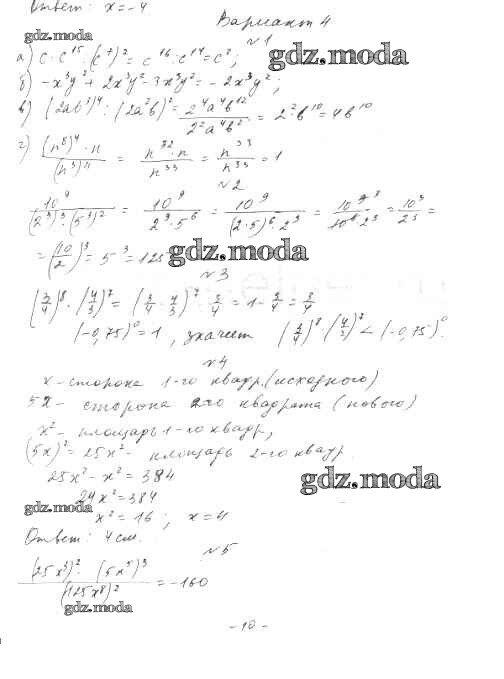 Ответ: x = -4
Вариант 4
gdz.moda
№1
gdz.moda
а) c · c¹⁵ : (c⁷)² = c¹⁶ : c¹⁴ = c²;
б) -x³y² + 2x³y² - 3x³y² = -2x³y²;
в) (2ab³)⁴ : (2a²b)² = 2⁴a⁴b¹² / 2²a⁴b² = 2²b¹⁰ = 4b¹⁰
г) (n⁸)⁴ · n / (n³)¹¹ = n³² · n / n³³ = n³³ / n³³ = 1
№2
10⁹ / (2³)³ · (5³)² = 10⁹ / 2⁹ · 5⁶ = 10⁹ / (2·5)⁶ · 2³ = 10⁹ ³ / 10⁶ · 2³ = 10³ / 2³ =
= (10/2)³ = 5³ = 125
gdz.moda
№3
(3/4)⁸ · (4/3)⁷ = (3/4 · 4/3)⁷ · 3/4 = 1 · 3/4 = 3/4
(-0,75)⁰ = 1, значит (3/4)⁸ · (4/3)⁷ < (-0,75)⁰.
№4
x - сторона 1-го квадр. (исходного)
5x - сторона 2-го квадрата (нового)
x² - площадь 1-го квадр,
(5x)² = 25x² - площадь 2-го квадр.
25x² - x² = 384
gdz.moda
24x² = 384
gdz.moda
x² = 16; x = 4
Ответ: 4 см.
№5
(25x³)² · (5x⁵)³ / (125x⁸)² = -160
gdz.moda
- 10 -